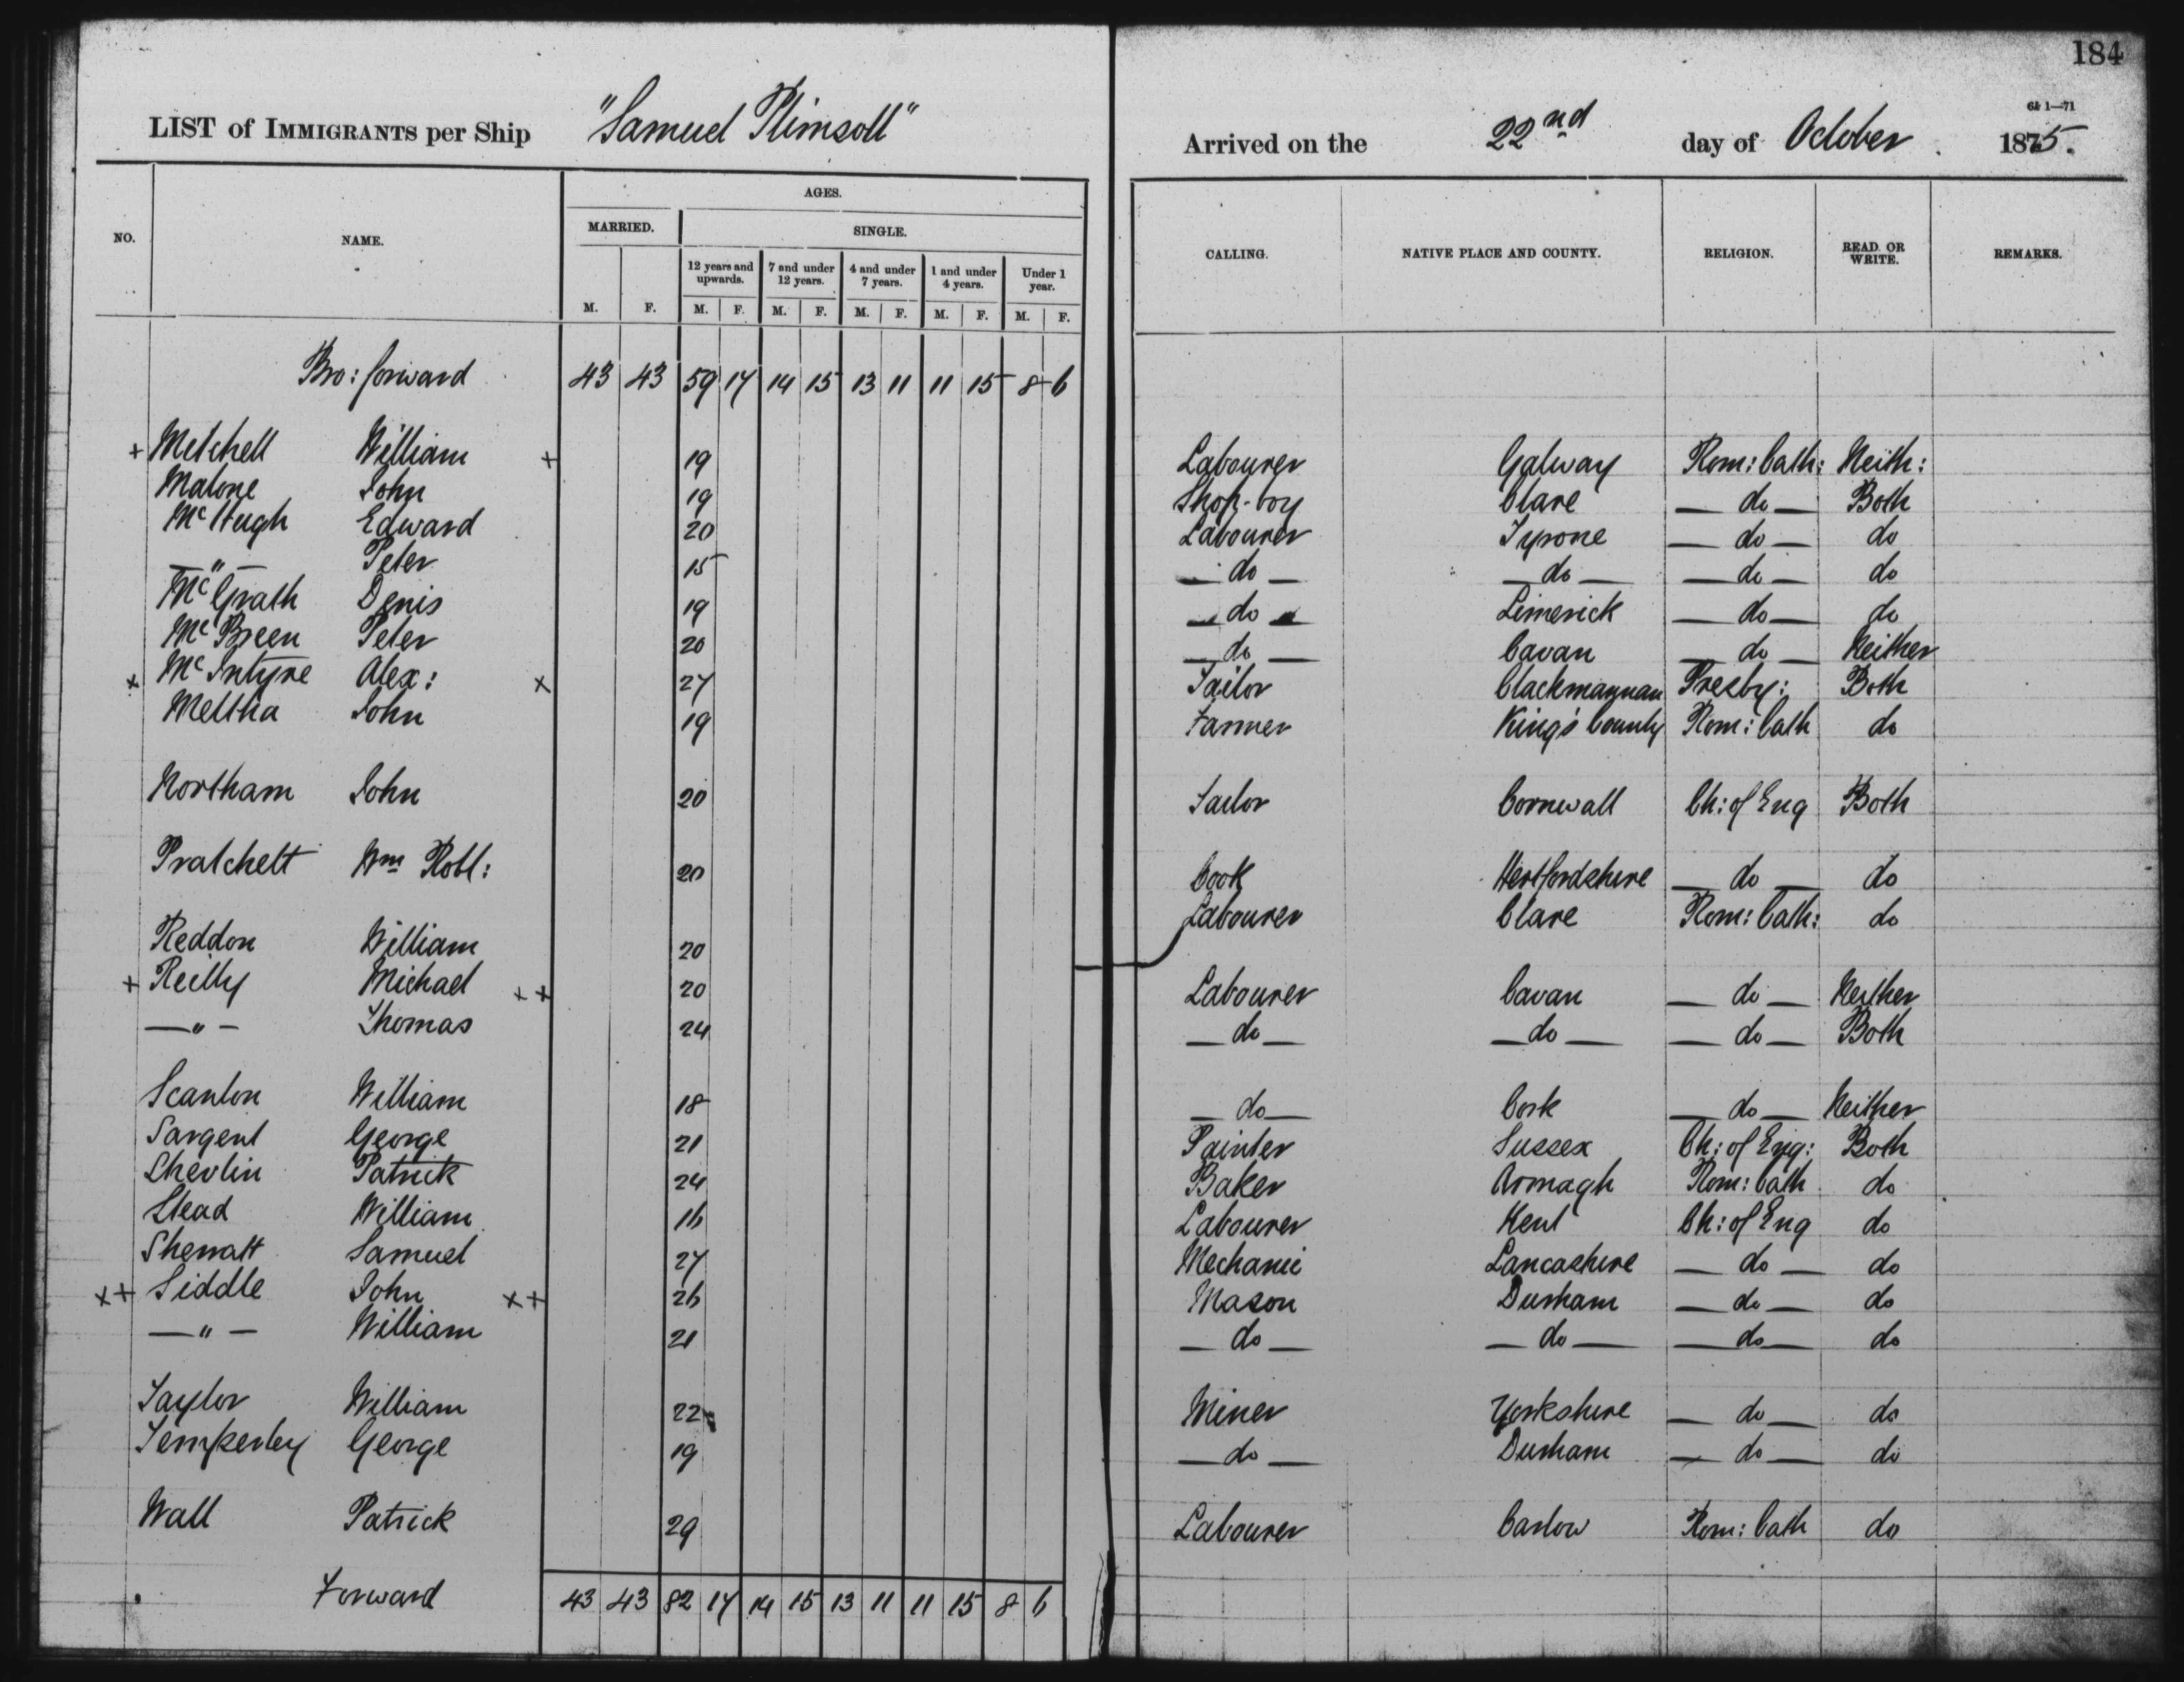 184
64 1—71
LIST of IMMIGRANTS per Ship "Samuel Plimsoll" Arrived on the 22nd day of October 1875.
NO. NAME. AGES. CALLING. NATIVE PLACE AND COUNTY. RELIGION. READ OR WRITE. REMARKS.
MARRIED. SINGLE.
12 years and upwards. 7 and under 12 years. 4 and under 7 years. 1 and under 4 years. Under 1 year.
M. F. M. F. M. F. M. F. M. F. M. F.
Bro: forward 43 43 59 17 14 15 13 11 11 15 8 6
+ Mitchell William + 19 Labourer Galway Rom: Cath: Neith:
Malone John 19 Shop-boy Clare — do — Both
McHugh Edward 20 Labourer Tyrone — do — do
— " — Peter 15 — do — — do — — do — do
McGrath Denis 19 — do — Limerick — do — do
McBreen Peter 20 — do — Cavan — do — Neither
x McIntyre Alex: x 27 Tailor Clackmannan Presby: Both
Meltha John 19 Farmer King's County Rom: Cath do
Northam John 20 Sailor Cornwall Ch: of Eng Both
Pratchett Wm Robt: 20 Cook Hertfordshire — do — do
Reddon William 20 Labourer Clare Rom: Cath: do
+ Reilly Michael x+ 20 Labourer Cavan — do — Neither
— " — Thomas 24 — do — — do — — do — Both
Scanlon William 18 — do — Cork — do — Neither
Sargent George 21 Painter Sussex Ch: of Eng: Both
Shevlin Patrick 24 Baker Armagh Rom: Cath do
Stead William 16 Labourer Kent Ch: of Eng do
Sherratt Samuel 27 Mechanic Lancashire — do — do
x+ Siddle John x+ 26 Mason Durham — do — do
— " — William 21 — do — — do — — do — do
Taylor William 22 Miner Yorkshire — do — do
Temperley George 19 — do — Durham — do — do
Wall Patrick 29 Labourer Carlow Rom: Cath do
Forward 43 43 82 17 14 15 13 11 11 15 8 6